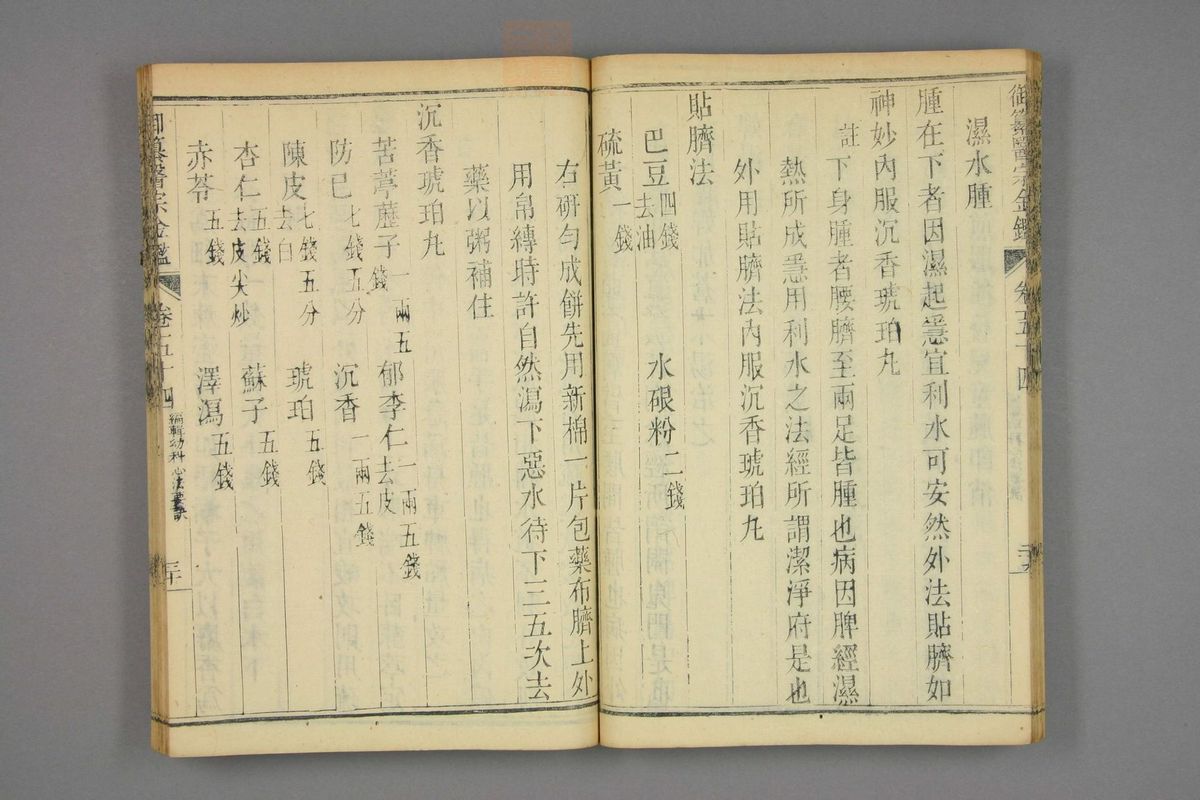 御纂醫宗金鑑 卷五十四
濕水腫
腫在下者因濕起急宜利水可安然外法貼臍如
神妙內服沉香琥珀丸
註下身腫者腰臍至兩足皆腫也病因脾經濕
熱所成急用利水之法經所謂潔淨府是也
外用貼臍法內服沉香琥珀丸
貼臍法
巴豆四錢去油 水硍粉二錢
硫黃一錢
右硏勻成餅先用新棉一片包藥布臍上外
用帛縳時許自然瀉下惡水待下三五次去
藥以粥補住
沉香琥珀丸
苦葶藶子一兩五錢 郁李仁去皮一兩五錢
防已七錢五分 沉香一兩五錢
陳皮七錢五分去白 琥珀五錢
杏仁五錢去皮尖炒 蘇子五錢
赤苓五錢 澤瀉五錢
御纂醫宗金鑑 卷五十四 編輯幼科心法要訣 三十